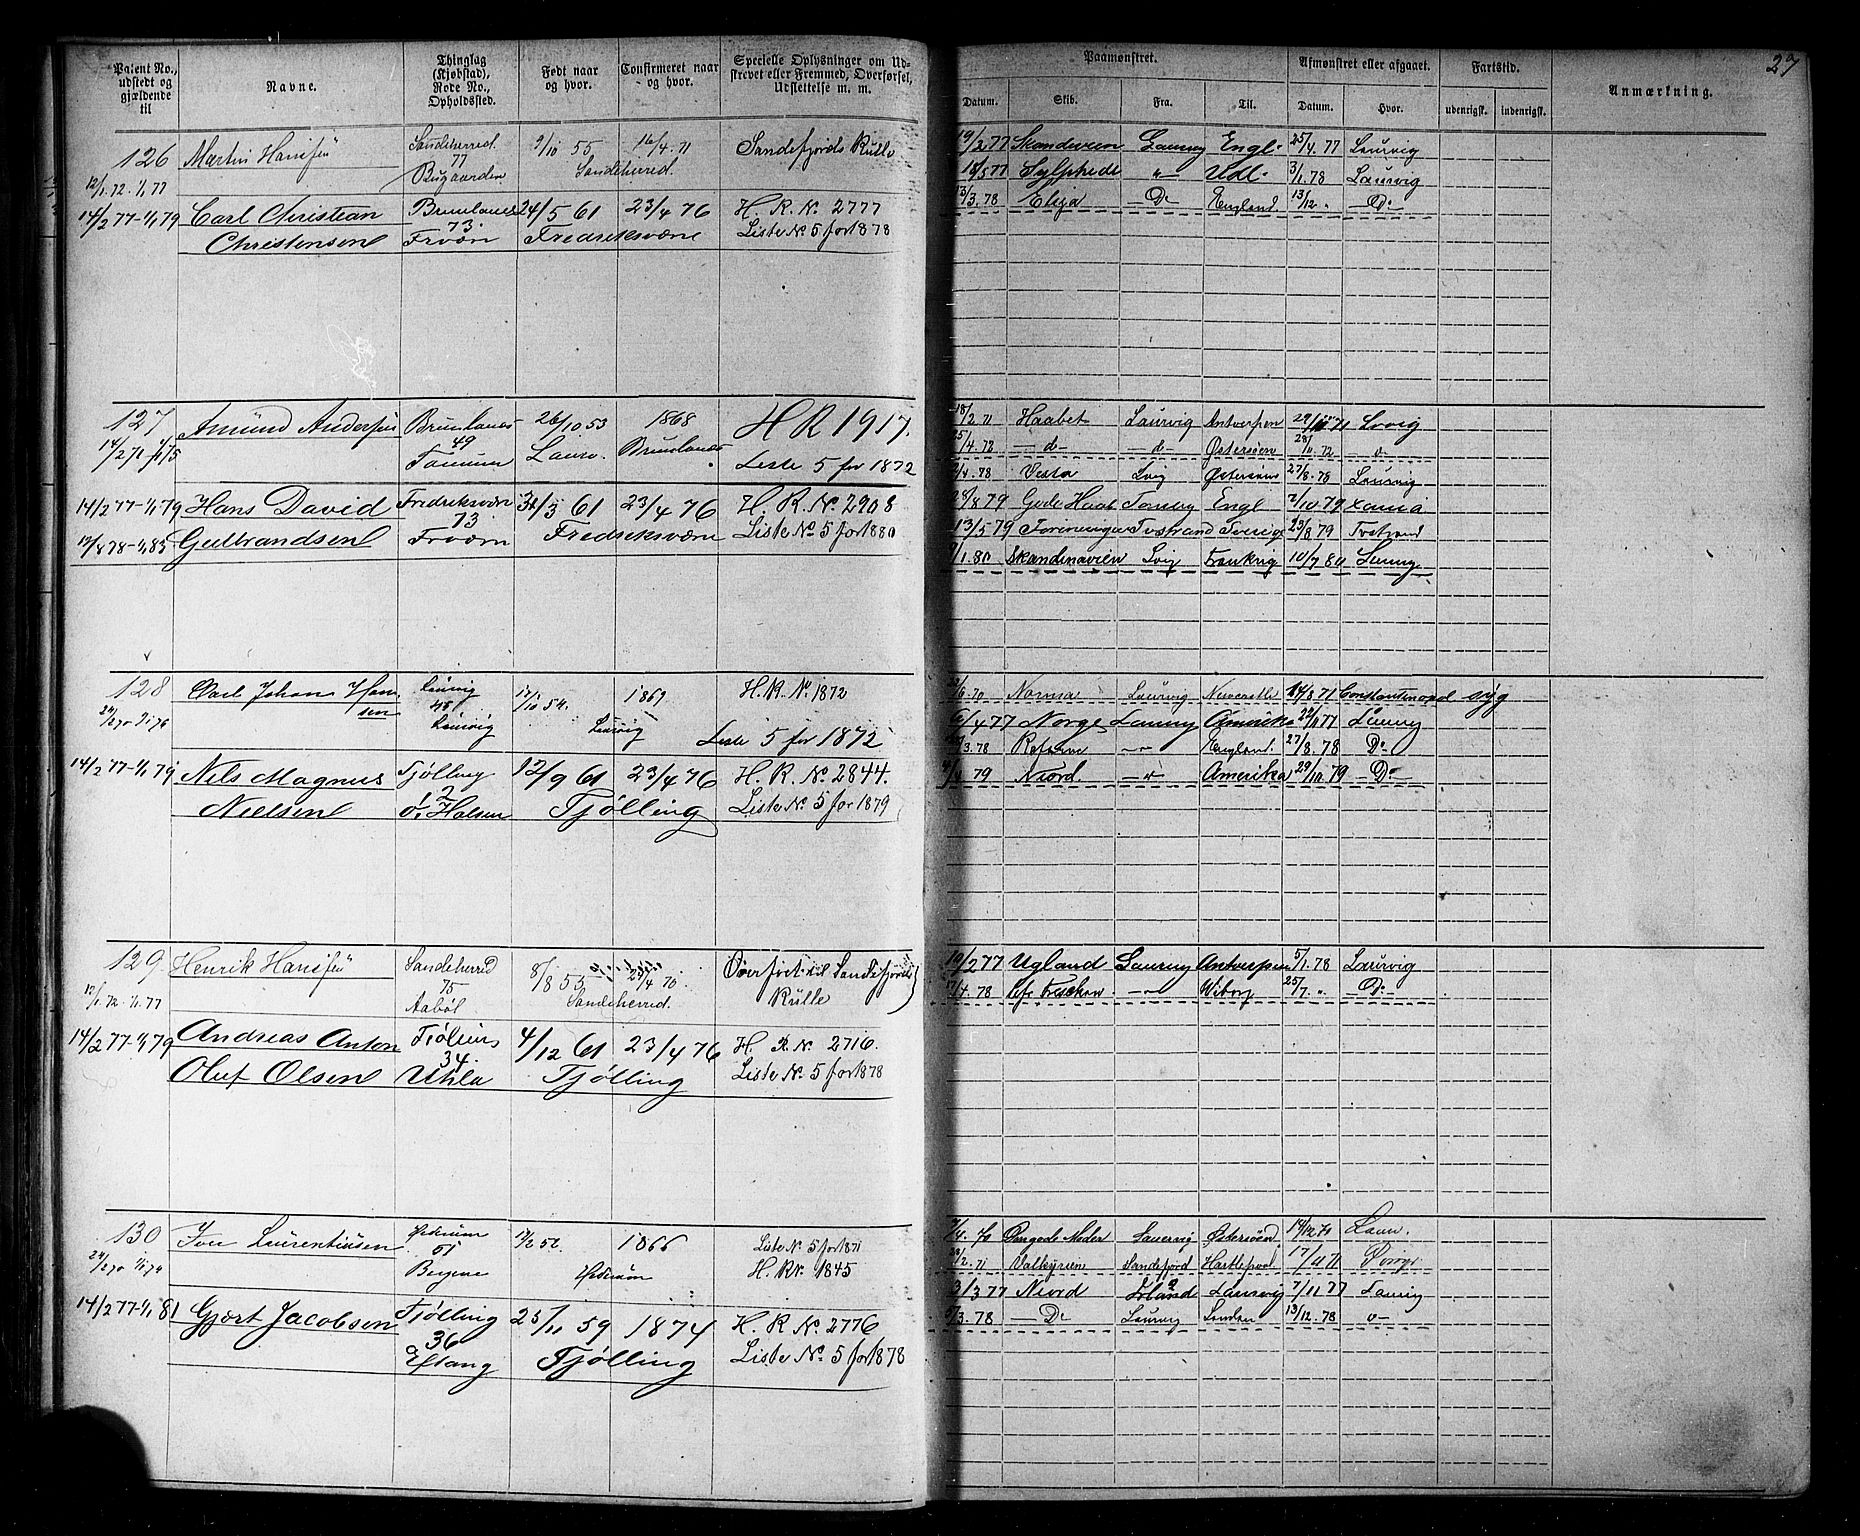 27
Patent No., udstedt og gjældende til
Navne.
Thinglag (Kjøbstad), Rode No., Opholdssted.
Født naar og hvor.
Confirmeret naar og hvor.
Specielle Oplysninger om Udskrevet eller Fremmed, Overførsel, Udslettelse m. m.
Paamønstret.
Afmønstret eller afgaaet.
Fartstid.
Anmærkning.
Datum. Skib. Fra. Til. Datum. Hvor. udenrigsk. indenrigsk.
126 Martin Hansen Sandeherred 9/10 55 16/4 71 Sandefjords Rulle
12/1 72 - 1/1 77 77 Bugaarden Sandeherred.
19/2 77 Skandavien Laurvig Engl. 25/4 77 Laurvig
Sylphide " Udl. 3/1 78 Laurvig
13/3 78 Elija Do England. 13/12 " Do
14/2 77-1/1 79 Carl Christian Brunlanes 24/5 61 23/4 76 H. R. No 2777
Christensen 73. Frværn Fredriksværn Liste No 5 for 1878
127 Amund Andersen Brunlanes 26/10 53 1868 H R 1917.
14/2 71-1/1 75 49 Tanum Laurv. Brunlanes Liste 5 for 1872
18/2 71 Haabet Laurvig Antverpen 71 Lvvig
25/4 72 - d - - d - Østersøen 72 - o -
78 Vesta Lvig Østersøen 27/8 78 Laurvig
14/2 77-1/1 79 Hans David Fredriksværn 61 23/4 76 H. R. No 2908
12/8 78-1/1 85 Gulbrandsen 73 Frværn Fredriksværn Liste No 5 for 1880
28/8 79 Gode Haab Engl 7/10 79 Xania
13/5 79 Foreningen Tvstrand Sverige 23/8 79 Tvstrand
1 80 Skandenavien Lvig Frankrig 10/7 80
128 Carl Johan Hansen Laurvig 17/10 54. 1869 H. R. No 1872
45 Laurvig Laurvig Liste 5 for 1872
6 70 Norma Laurvig 14/8 71 Constantinopel syg
6/4 77 Norge Laurvig Amerika 77 Laurvig
3 78 England. 27/8 78 Do
14/2 77-1/1 79 Nils Magnus Tjølling 12/9 61 23/4 76 H. R. No 2844.
Nielsen 12 Ø. Halsen Tjølling Liste No 5 for 1879
79 Niord. - " - Amerika 29/10 79 Do
129 Henrik Hansen Sandeherred 8/8 55 70 Overført til Sandefjords Rulle
12/1 72 - 1/1 77 75 Aabøl Sandeherred.
19/2 77 Ugland Laurvig Antverpen 5/1 78 Laurvig
17/4 78 - " - Wiborg 25/7 " Do
14/2 77-1/1 79 Andreas Anton Tjølling 4/12 61 23/4 76 H. R. No 2716.
Oluf Olsen 34. Uhla Tjølling Liste No 5 for 1878
130 Iver Laurentiusen Hedrum 52. 1866 Liste No 5 for 1871
51 Bergene Hedrum H. R No 1845
4 70 Laurvig Østersøen 14/12 70 Laurv.
2 71 Valkyrien Sandefjord Hartlepool 17/11 71
14/2 77-1/1 81 Gjert Jacobsen Tjølling 25/11 59 1874 H. R. No 2776
36 Eftang Tjølling Liste No 5 for 1878
3/3 77 Niord Irland Laurvig 7/11 77 Laurvig
5/3 78 Do Laurvig London 13/12 78 o-